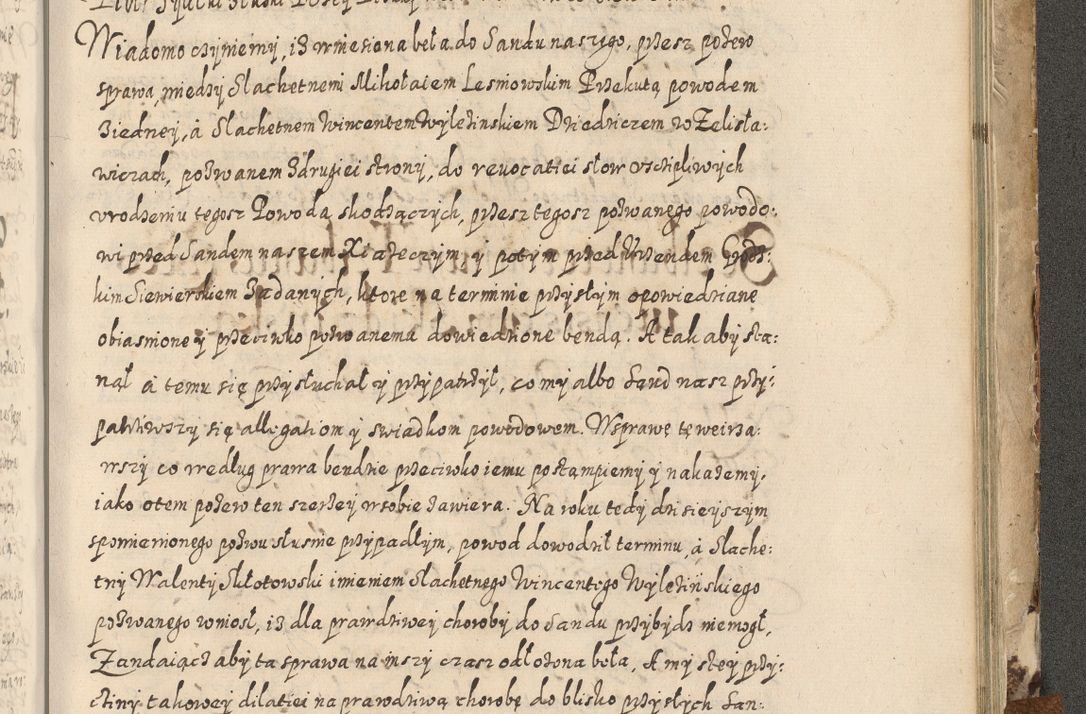 Wiadomo czyniemy, iż wniesiona beła do Sandu naszego, przesz pozew
sprawa, miedzy Slachetnemi Mikołaiem Lesniowskim Przekutą powodem
ziedney, à Slachetnem Wincentem Wylezinskiem Dziedziczem w Zelisła:
wiczach, pozwanem z drugiei strony, do revocatiei słow uscipliwych
vrodzeniu tegosz Powoda skodzączych, przesz tegosz pozwanego powodo:
wi przed Sandem naszem Xiążeczym, y potym przed Urzendem Grodz:
kim Siewierskiem Zadanych, ktore na terminie przysłym opowiedziane
obiasnione y przeciwko pozwanema dowiedzione bendą. A tak aby sta:
nął à temu się przysłuchał y przypatrzył, co my albo Sand nasz przy:
patrziwszy się allegatiom y swiadkom powodowem. W sprawę tę weirza:
wszy co według prawa bendzie przeciwko iemu postąmpiemy y nakażemy,
iako o tem pozew ten szerzey w sobie zawiera. Na roku tedy dzisieyszym
spomienionego pozwu słusnie przypadłym, powod dowodził terminu, à Slache:
tny Walenty Skłotowski imieniem Slachetnego Wincentego Wylezińskiego
pozwanego wniosł, iż dla prawdziwey choroby do Sandu przybydz niemogł,
Zandaiącz aby ta sprawa na inszy czasz odłożona beła, A my s tey przy:
cziny takowey dilatiei na prawdziwą chorobę do blisko przysłych San: